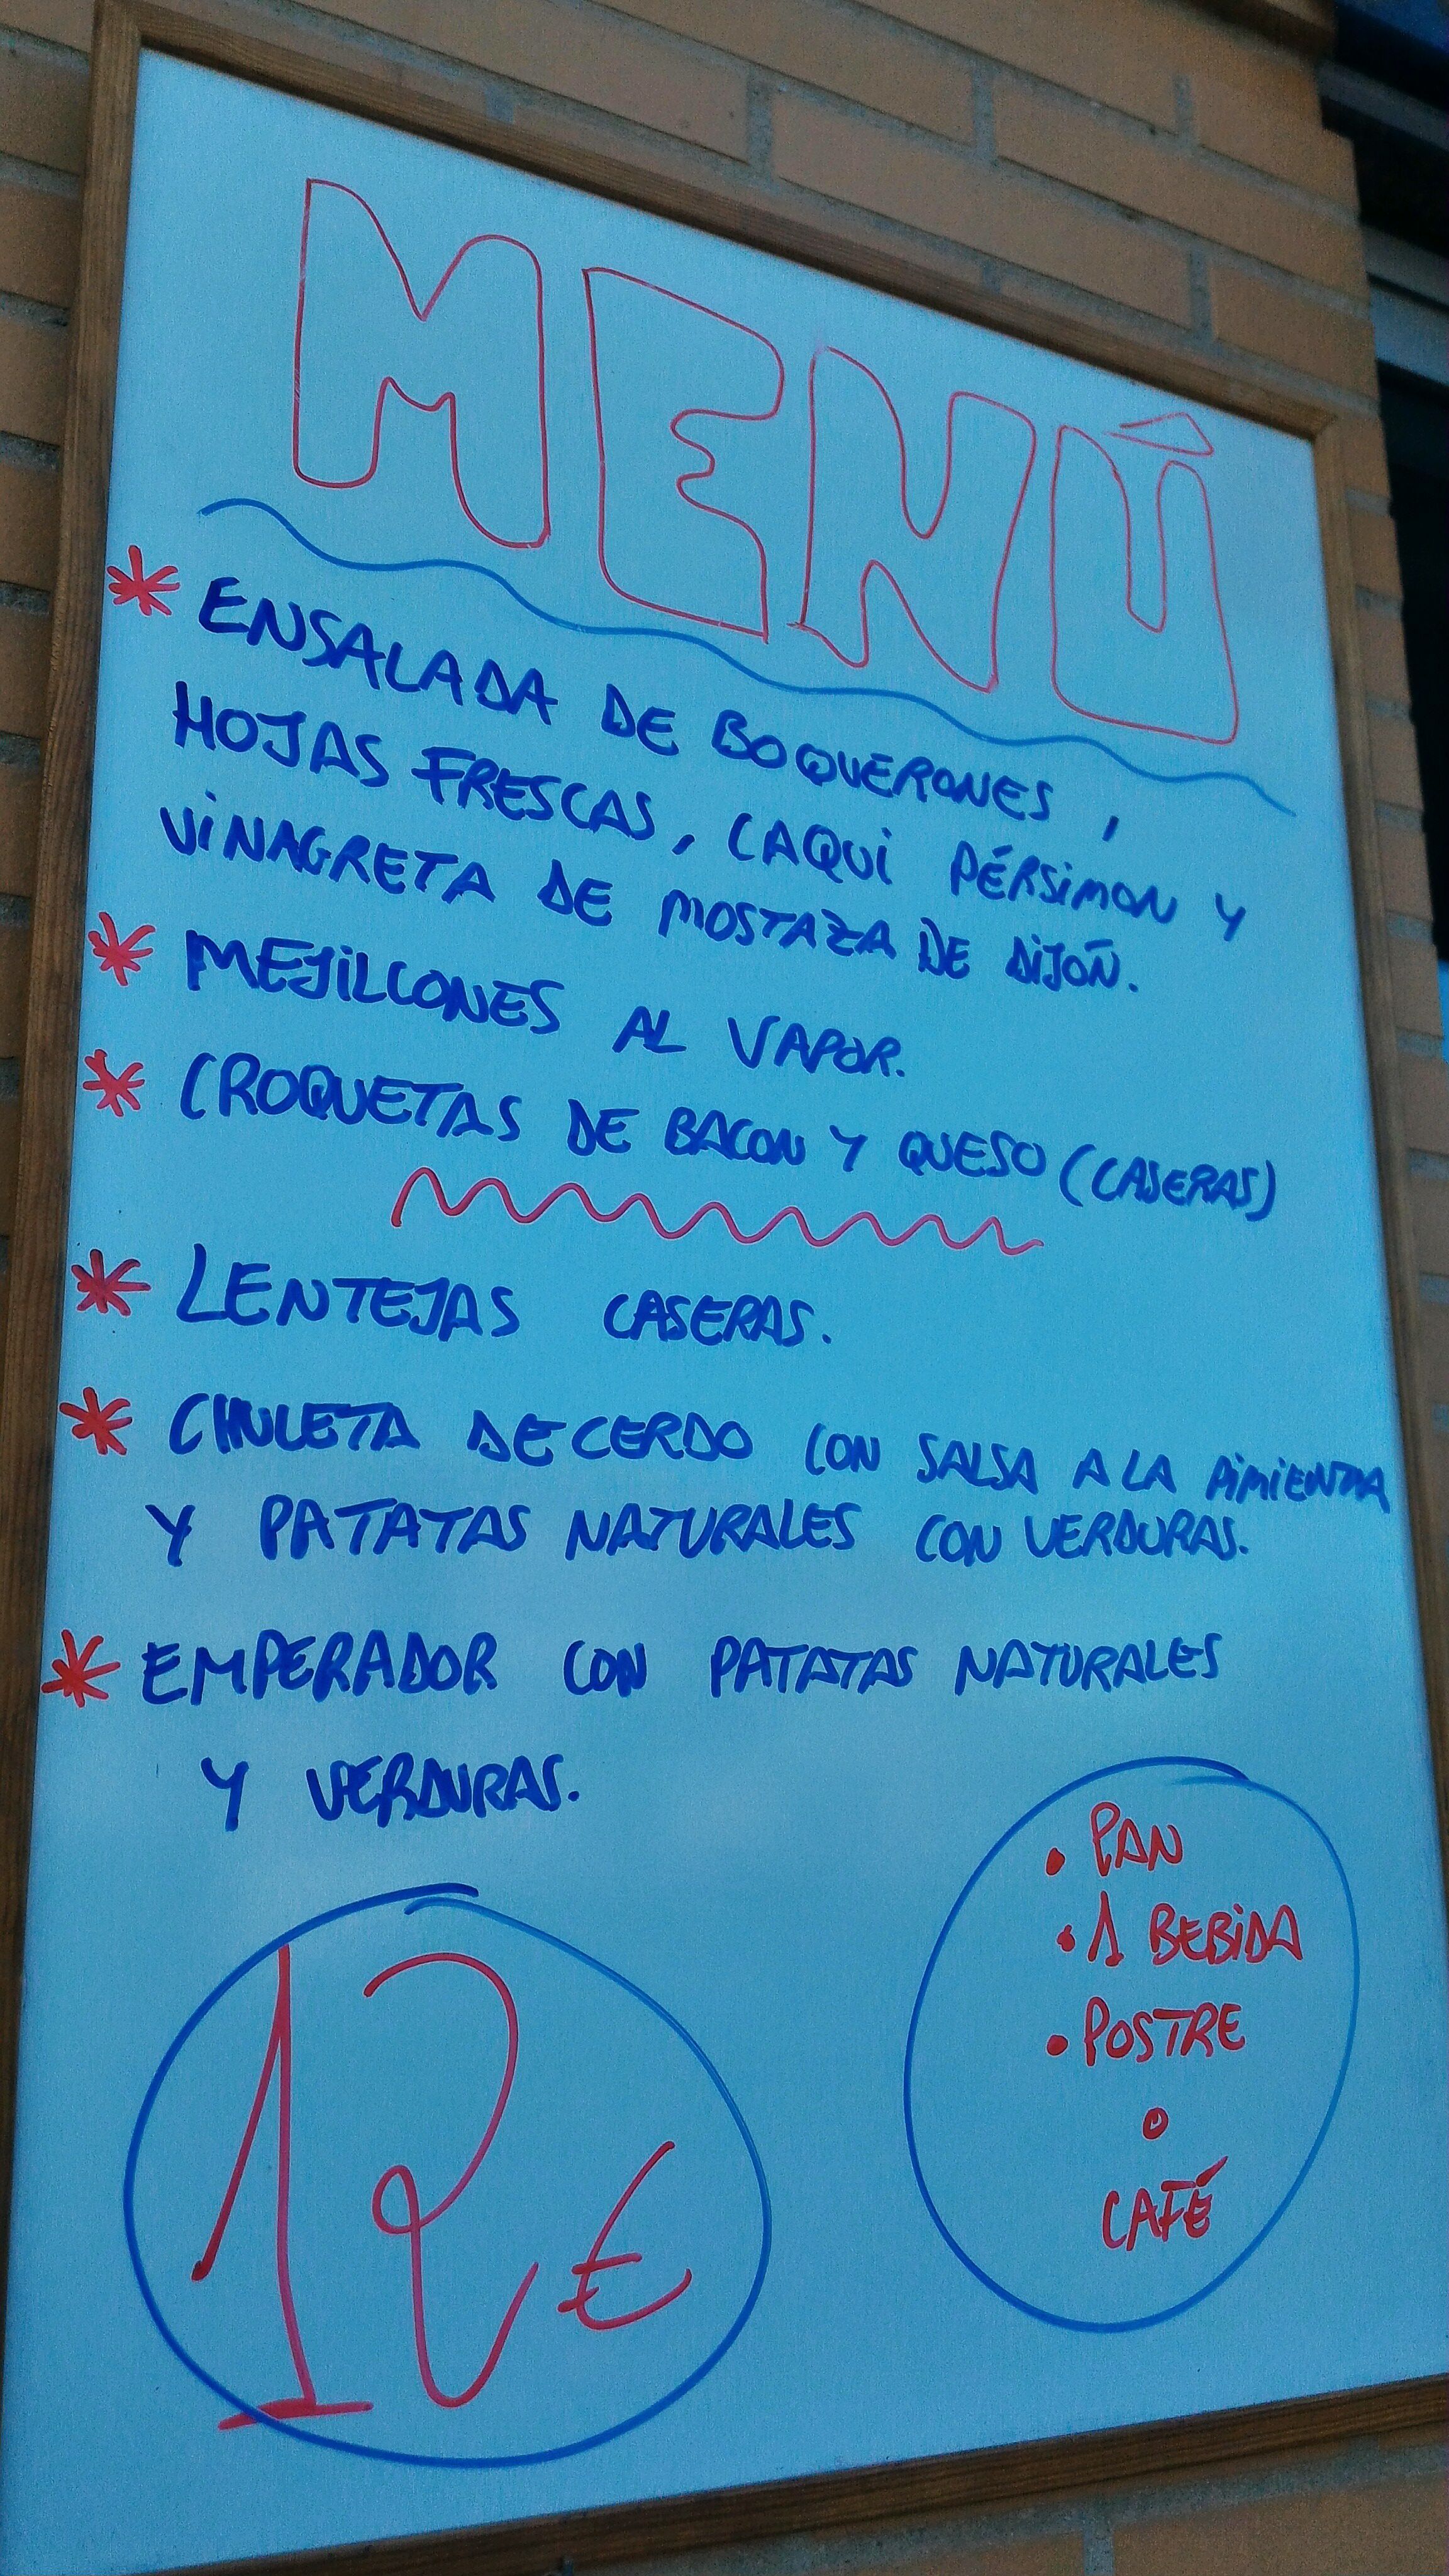 MENÚ
* ENSALADA DE BOQUERONES,
HOJAS FRESCAS, CAQUI PÉRSIMON Y
VINAGRETA DE MOSTAZA DE DIJON.
* MEJILLONES AL VAPOR.
* CROQUETAS DE BACON Y QUESO (CASERAS)
* LENTEJAS CASERAS.
* CHULETA DE CERDO CON SALSA A LA PIMIENTA
Y PATATAS NATURALES CON VERDURAS.
* EMPERADOR CON PATATAS NATURALES
Y VERDURAS.
• PAN
• 1 BEBIDA
• POSTRE
O
CAFÉ
12 €